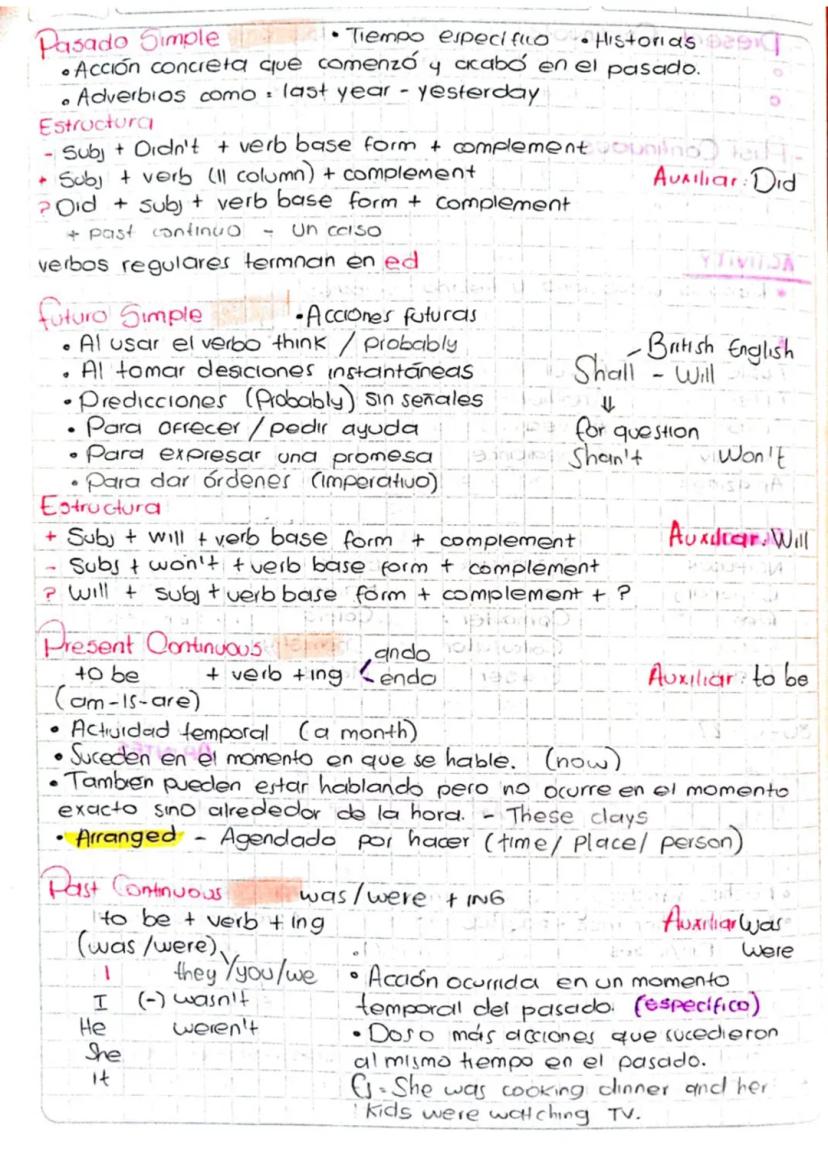 Pasado Simple • Tiempo especifico • Historias
• Acción concreta que comenzó y acabó en el pasado.
• Adverbios como: last year - yesterday
Estructura
- Subj + Didn't + verb base form + complement
+ Subj + verb (II column) + complement
Auxiliar: Did
? Did + subj + verb base form + complement
+ past continuo - un caso
verbos regulares termnan en ed
futuro Simple • Acciones futuras
• Al usar el verbo think / probably
• Al tomar desiciones instantáneas
• Predicciones (Probably) sin señales
• Para ofrecer / pedir ayuda
• Para expresar una promesa
• Para dar órdenes (imperativo)
- British English
Shall - Will
⇓
for question
Shan't Won't
Estructura
+ Subj + will + verb base form + complement
Auxiliar: Will
- Subj + won't + verb base form + complement
? Will + subj + verb base form + complement + ?
Present Continuous
ando
to be + verb + ing < endo
Auxiliar: to be
(am-is-are)
• Actividad temporal (a month)
• Suceden en el momento en que se hable. (now)
• Tambien pueden estar hablando pero no ocurre en el momento
exacto sino alrededor de la hora. - These days
• Arranged - Agendado por hacer (time/ Place/ person)
Past Continuous was/were + ING
to be + verb + ing
Auxiliar Was
Were
(was/were)
I they/you/we
I (-) wasn't
He weren't
She
it
• Acción ocurrida en un momento
temporal del pasado. (específico)
• Dos o más acciones que sucedieron
al mismo tiempo en el pasado.
Ej = She was cooking dinner and her
kids were watching TV.